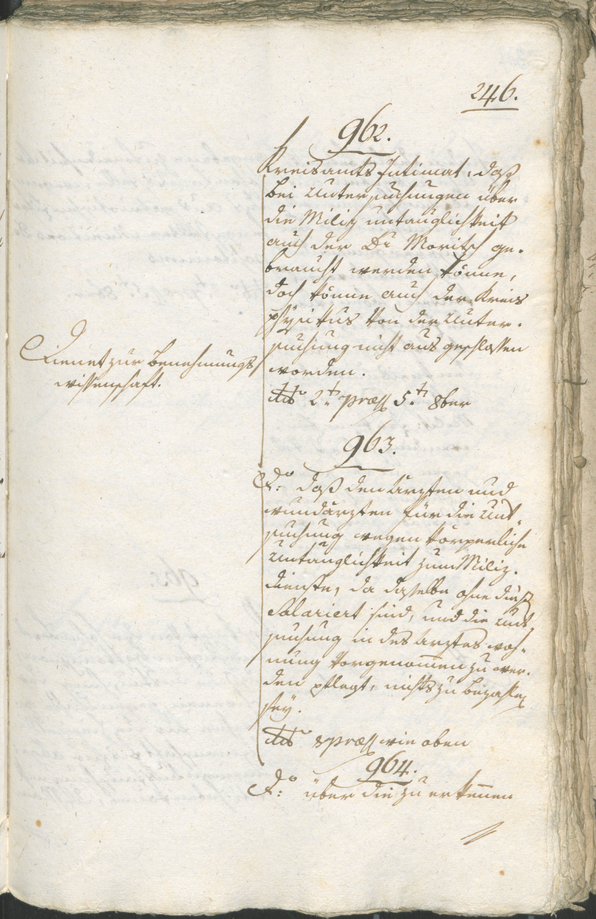 246.
962.
Kreisamts Intimat, daß
bei Untersuchungen über
die Miliz untauglichkeit
auch der Dr Moritsch ge-
braucht werden könne,
doch könne auch der Kreis
physikus von der Unter-
suchung nicht ausgeschlossen
worden.
dto 2t praes 5t 8ber
Dienet zur Benehmungs
wissenschaft.
963.
do: daß den Ärzten und
wundärzten für die Unt-
suchung wegen körperliche
Untauglichkeit zum Miliz-
dienste, da dieselbe ohne dieß
Salariert sind, und die Unt
suchung in des Arztes woh-
nung vorgenommen zu wer-
den pflegt, nichts zu bezahlen
sey.
dto & praes wie oben
964.
do: über die zu erkennen